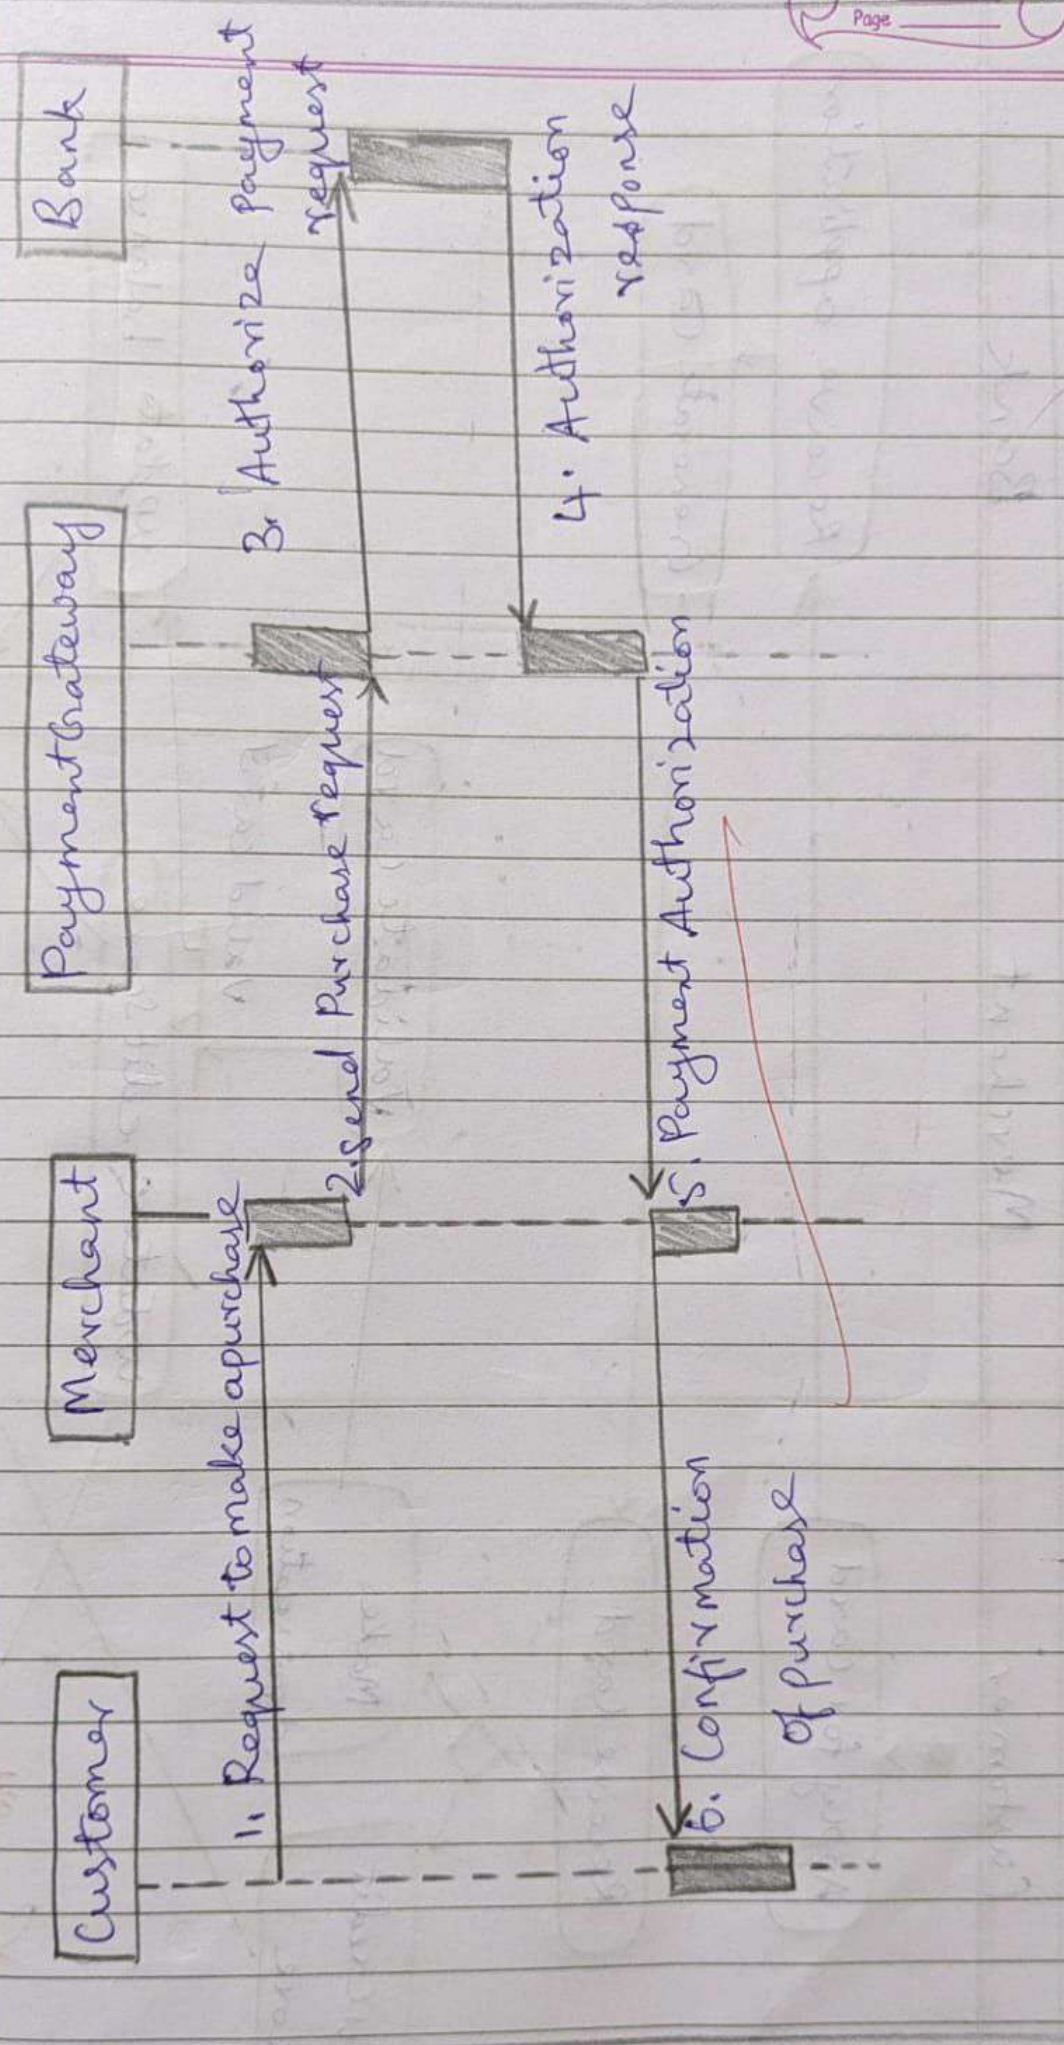 Page
Customer
Merchant
PaymentGateway
Bank
1. Request to make a purchase
2. Send Purchase request
3. Authorize Payment
request
4. Authorization
response
5. Payment Authorization
6. Confirmation
of purchase